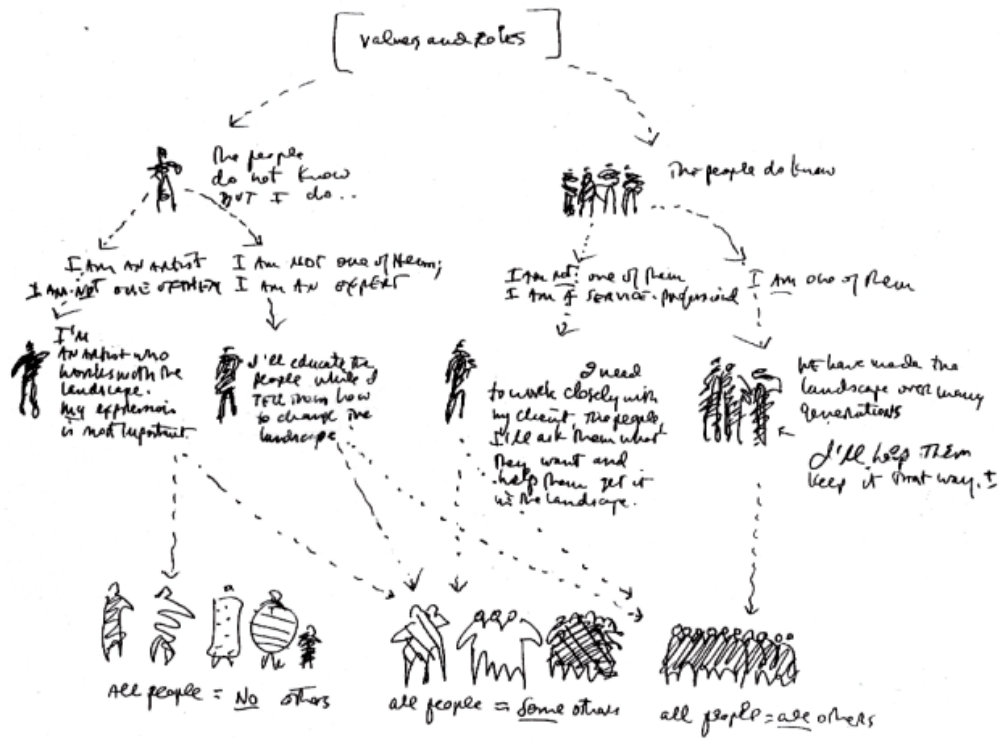 values and roles
The people
do not know
BUT I do...
The people do know
I AM AN ARTIST
I AM NOT ONE OF THEM
I AM NOT one of them;
I AM AN EXPERT
I AM NOT one of them
I AM A SERVICE-professional
I AM one of them
I'm
AN Artist who
works with the
landscape.
my expression
is most important.
I'll educate the
people while I
TELL them how
to change the
landscape
I need
to work closely with
my client, the people,
I'll ask them what
they want and
help them get it
in the landscape.
We have made the
landscape over many
generations
I'll help them
keep it that way.
All people = No others
all people = Some others
all people = all others